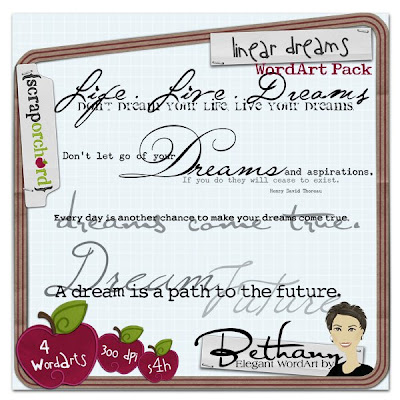 linear dreams
WordArt Pack
{scraporchard}
Life. Live. Dreams
Don't dream your life, live your dreams.
Don't let go of your Dreams and aspirations.
If you do they will cease to exist.
Henry David Thoreau
dreams come true.
Every day is another chance to make your dreams come true.
Dream Future
A dream is a path to the future.
4
WordArts
300 dpi
s4h
Bethany
Elegant WordArt by